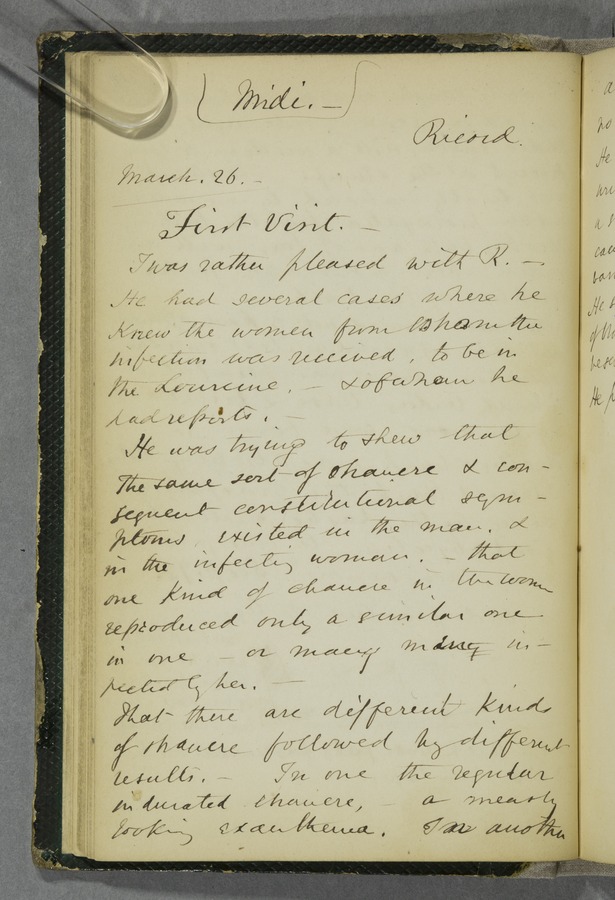 Midi. —
Ricord.
March. 26. —
First Visit. —
I was rather pleased with R. —
He had several cases where he
Knew the women from whom the
infection was received, to be in
the Lourcine. — & of whom he
had reports. —
He was trying to shew that
the same sort of chancre & con-
sequent constitutional symp-
ptoms existed in the man, &
in the infecting woman. — that
one kind of chancre in the woman
reproduced only a similar one
in one — or many in-
fected by her. —
That there are different kinds
of chancre followed by different
results. — In one the regular
indurated chancre, — a measly
looking exanthema. In another
a
no
He
a
He
He